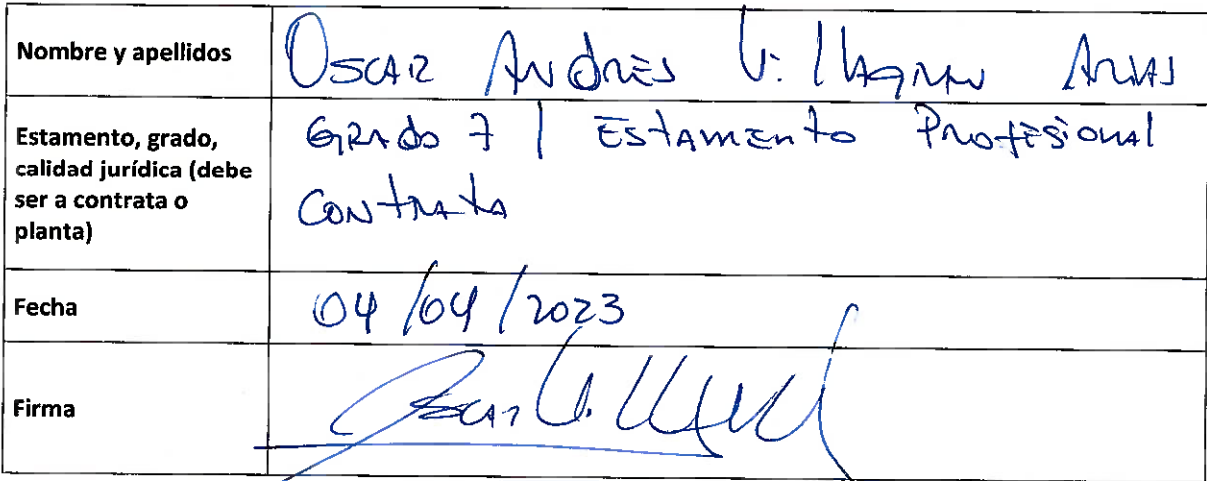 Nombre y apellidos
Oscar Andrés Villagran Arias
Estamento, grado,
calidad jurídica (debe
ser a contrata o
planta)
Grado 7 / Estamento Profesional
Contrata
Fecha
04/04/2023
Firma
Oscar Villagran